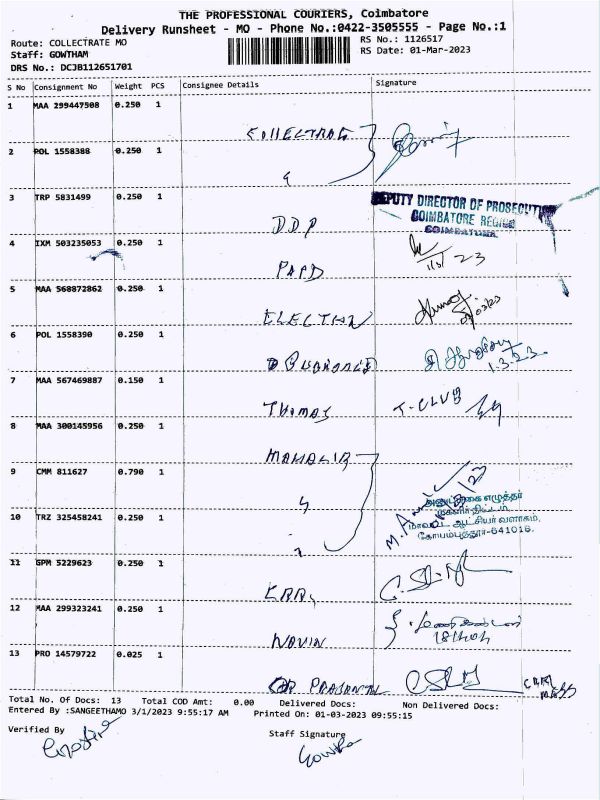 THE PROFESSIONAL COURIERS, Coimbatore
Delivery Runsheet - MO - Phone No.:0422-3505555 - Page No.:1
Route: COLLECTRATE MO
RS No.: 1126517
Staff: GOWTHAM
RS Date: 01-Mar-2023
DRS No.: DCJB112651701
S No Consignment No Weight PCS Consignee Details Signature
1 MAA 299447508 0.250 1 COLLECTRATE
2 POL 1558388 0.250 1
3 TRP 5831499 0.250 1 DDP
DEPUTY DIRECTOR OF PROSECUTION
COIMBATORE REGION
COIMBATORE
4 IXM 503235053 0.250 1 PAPD 1/3/23
5 MAA 568872862 0.250 1 ELECTION 01/03/23
6 POL 1558390 0.250 1 1.3.23
7 MAA 567469887 0.150 1 THOMAS T-CLUB
8 MAA 300145956 0.250 1 MAHALIR
9 CMM 811627 0.790 1
மகளிர் திட்டம்,
மாவட்ட ஆட்சியர் வளாகம்,
கோயம்புத்தூர்-641018.
10 TRZ 325458241 0.250 1
11 GPM 5229623 0.250 1
12 MAA 299323241 0.250 1 NAVIN
13 PRO 14579722 0.025 1
Total No. Of Docs: 13 Total COD Amt: 0.00 Delivered Docs: Non Delivered Docs:
Entered By :SANGEETHAMO 3/1/2023 9:55:17 AM Printed On: 01-03-2023 09:55:15
Verified By
Staff Signature